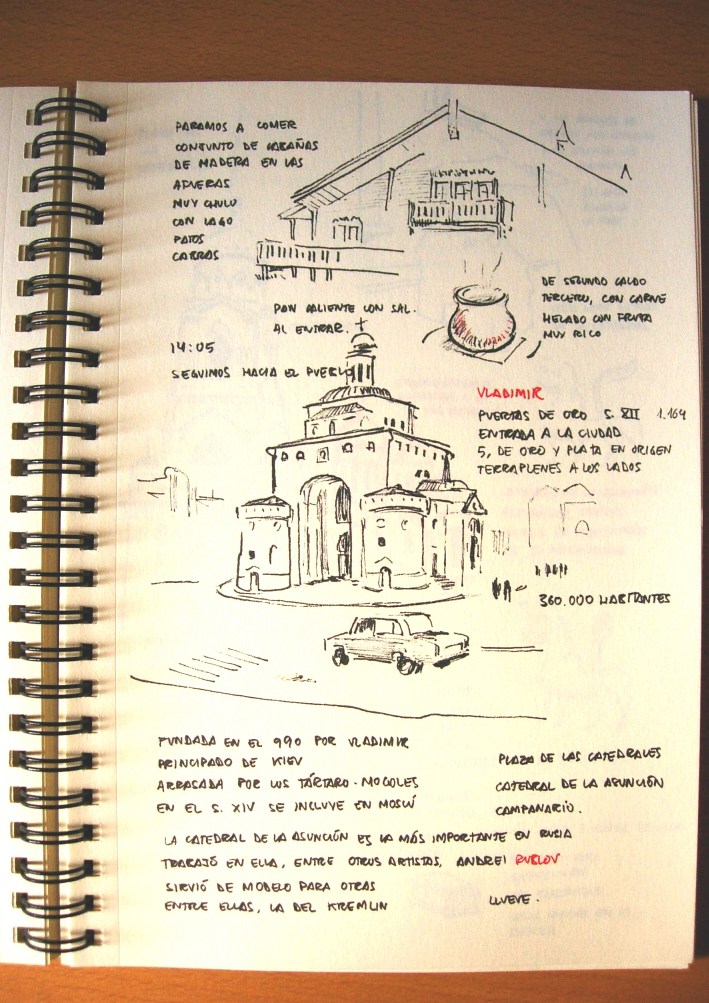 PARAMOS A COMER
CONJUNTO DE CABAÑAS
DE MADERA EN LAS
AFUERAS
MUY CHULO
CON LAGO
PATOS
CABRAS
PAN CALIENTE CON SAL.
AL ENTRAR.
DE SEGUNDO CALDO
TERCERO, CON CARNE
HELADO CON FRUTA
MUY RICO
14:05
SEGUIMOS HACIA EL PUEBLO
VLADIMIR
PUERTAS DE ORO S. XII 1.164
ENTRADA A LA CIUDAD
5, DE ORO Y PLATA EN ORIGEN
TERRAPLENES A LOS LADOS
360.000 HABITANTES
FUNDADA EN EL 990 POR VLADIMIR
PRINCIPADO DE KIEV
ARRASADA POR LOS TÁRTARO-MOGOLES
EN EL S. XIV SE INCLUYE EN MOSCÚ
PLAZA DE LAS CATEDRALES
CATEDRAL DE LA ASUNCIÓN
CAMPANARIO.
LA CATEDRAL DE LA ASUNCIÓN ES LA MÁS IMPORTANTE EN RUSIA
TRABAJÓ EN ELLA, ENTRE OTROS ARTISTAS, ANDREI RUBLOV
SIRVIÓ DE MODELO PARA OTRAS
ENTRE ELLAS, LA DEL KREMLIN
LLUEVE.